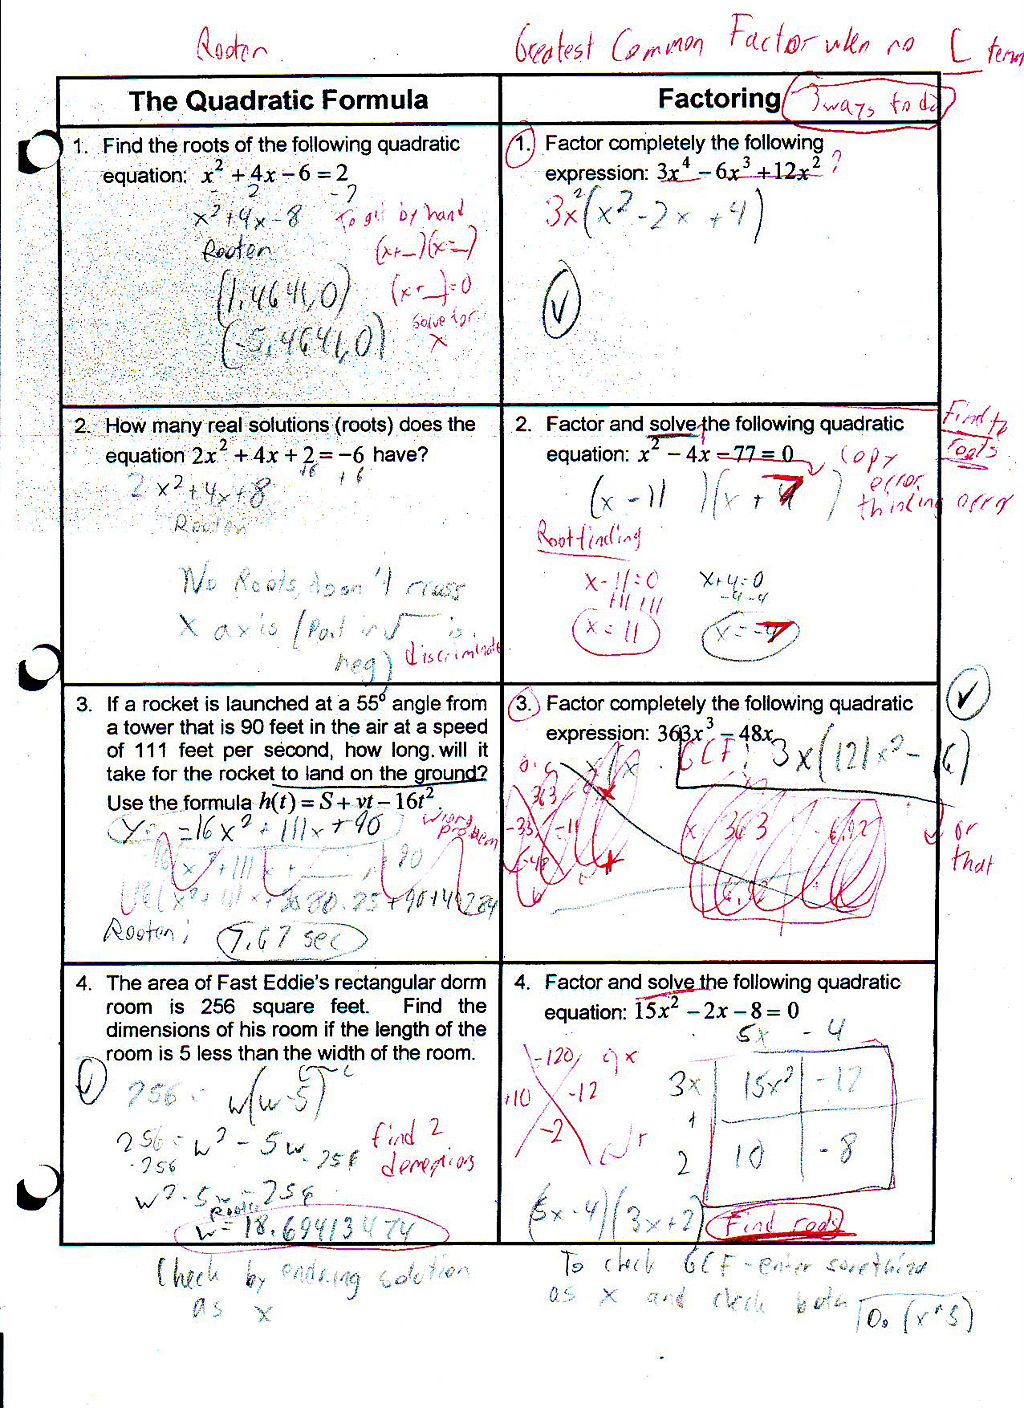 Rooten
Greatest Common Factor when no C term
The Quadratic Formula
Factoring
3 ways to do
1. Find the roots of the following quadratic
equation: x² + 4x – 6 = 2
-2 -2
x² + 4x - 8
To get by hand
Rooten
(x+_)(x=_)
(1.4641,0)
(x+_)=0
solve for
x
(-5.4641,0)
1. Factor completely the following
expression: 3x⁴ – 6x³ + 12x² ?
3x²(x² - 2x + 4)
✓
2. How many real solutions (roots) does the
equation 2x² + 4x + 2 = –6 have?
+6 +6
2x² + 4x + 8
Rooten
No Roots, doesn't cross
x axis (Part in √ is
neg)
discriminate
2. Factor and solve the following quadratic
equation: x² – 4x – 77 = 0
Find to
roots
copy
error
thinking error
(x - 11)(x + 7)
Rootfinding
x - 11 = 0
+11 +11
x = 11
x+4=0
-4 -4
x = -7
3. If a rocket is launched at a 55° angle from
a tower that is 90 feet in the air at a speed
of 111 feet per second, how long will it
take for the rocket to land on the ground?
Use the formula h(t) = S + vt – 16t².
y = -16x² + 111x + 90
wrong
problem
Rooten:
7.67 sec
3. Factor completely the following quadratic
expression: 363x³ – 48x
✓
GCF! 3x(121x² - 16)
363
-33 -11
-48
x 363
or
that
4. The area of Fast Eddie's rectangular dorm
room is 256 square feet. Find the
dimensions of his room if the length of the
room is 5 less than the width of the room.
✓
256 = w(w-5)
256 = w² - 5w
-256 -256
find 2
demensions
w² - 5w - 256
Rooten
w = 18.69413474
4. Factor and solve the following quadratic
equation: 15x² – 2x – 8 = 0
5x - 4
-120
+10 -12
-2
3x 15x² -12
+
2 10 -8
(5x - 4)(3x + 2)
Find roots
Check by entering solution
as x
To check GCF - enter something
as x and check both